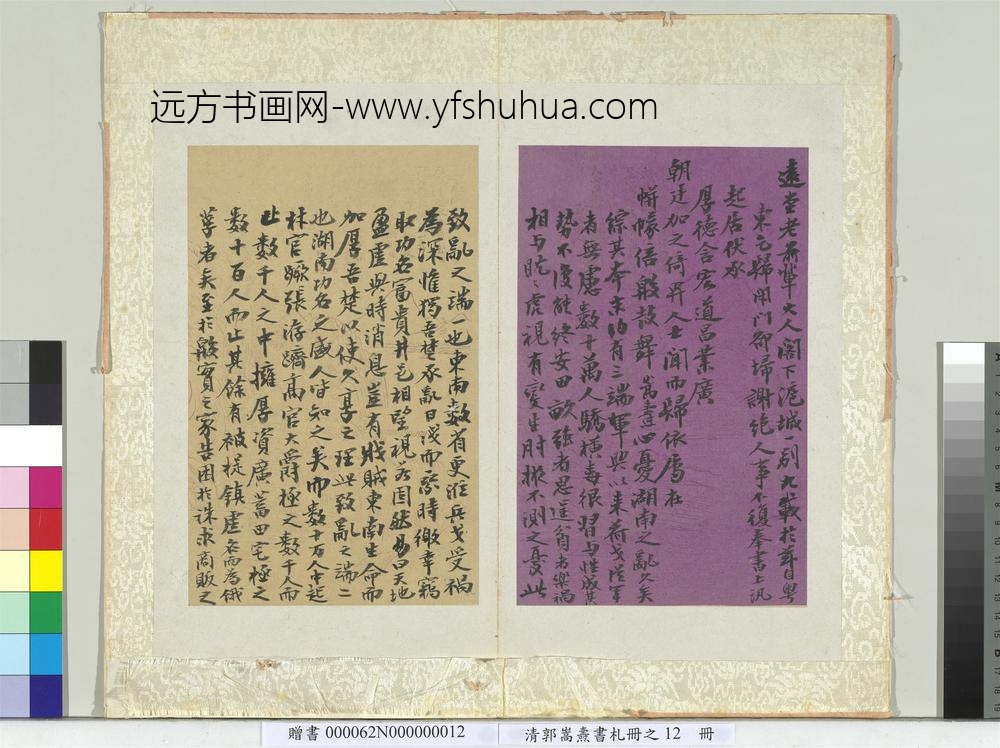 远方书画网-www.yfshuhua.com
遠堂老前輩大人閣下滬城一別九載於茲自粵
東乞歸閉門卻埽謝絕人事不復奉書上汛
起居伏承
厚德含宏道昌業廣
朝廷加之倚畀人士聞而歸依焉在
帡幪倍殷鼓舞嵩燾心憂湖南之亂久矣
綜其本末約有三端軍興以來荷戈從軍
者無慮數十萬人驕橫毒很習與性成其
勢不復能終安田畝強者思逞弱者樂禍
相與眈眈虎視有變生肘掖不測之憂此
致亂之端一也東南數省更歷兵戈受禍
為深惟獨吾楚承亂日淺而緣時徼幸竊
取功名富貴井邑相望視為固然易曰天地
盈虛與時消息豈有戕賊東南生命而
加厚吾楚以使久享之理此致亂之端二
也湖南功名之盛人皆知之矣而數十萬人中起
材官蹶張洊躋高官大爵極之數千人而
止數千人之中擁厚資廣置田宅極之
數十百人而止其餘有被提鎮虛名而為餓
莩者矣至於殷實之家告困於誅求商販之
贈書 000062N000000012
清郭嵩燾書札冊之 12 冊